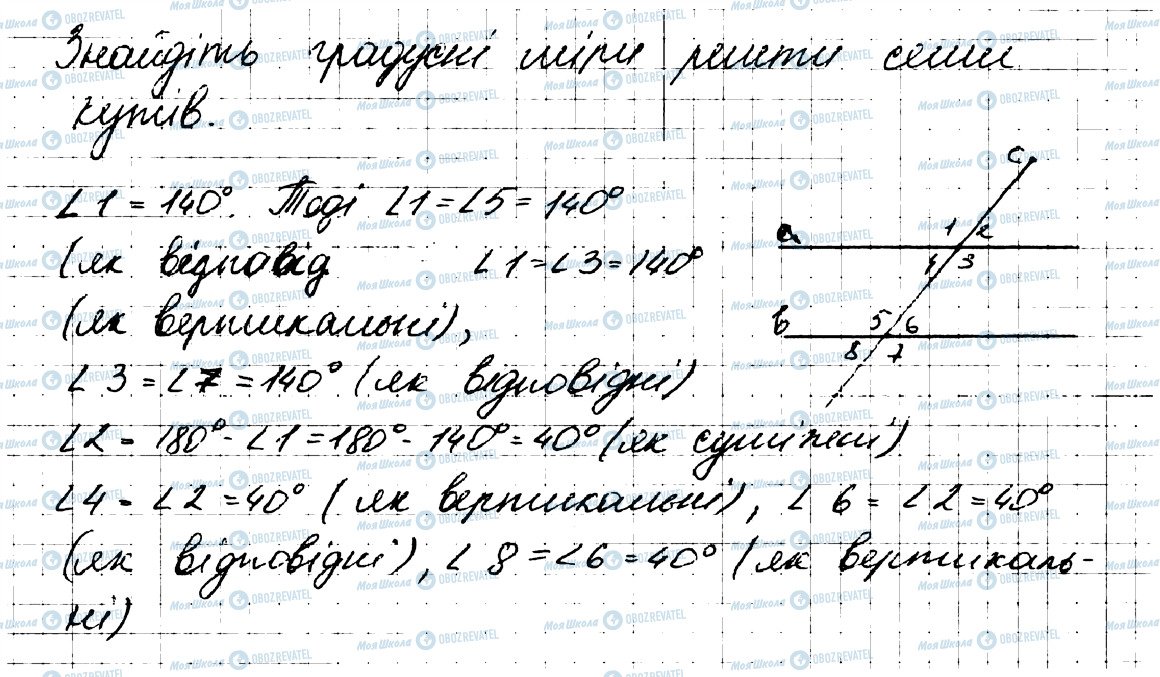 Знайдіть градусні міри решти семи
кутів.
∠1 = 140°. Тоді ∠1 = ∠5 = 140°
(як відповід ∠1 = ∠3 = 140°
(як вертикальні),
∠3 = ∠7 = 140° (як відповідні)
∠2 = 180° - ∠1 = 180° - 140° = 40° (як суміжні)
∠4 = ∠2 = 40° (як вертикальні), ∠6 = ∠2 = 40°
(як відповідні), ∠8 = ∠6 = 40° (як вертикаль-
ні)
c
a 1 2
4 3
b 5 6
8 7
Моя Школа OBOZREVATEL